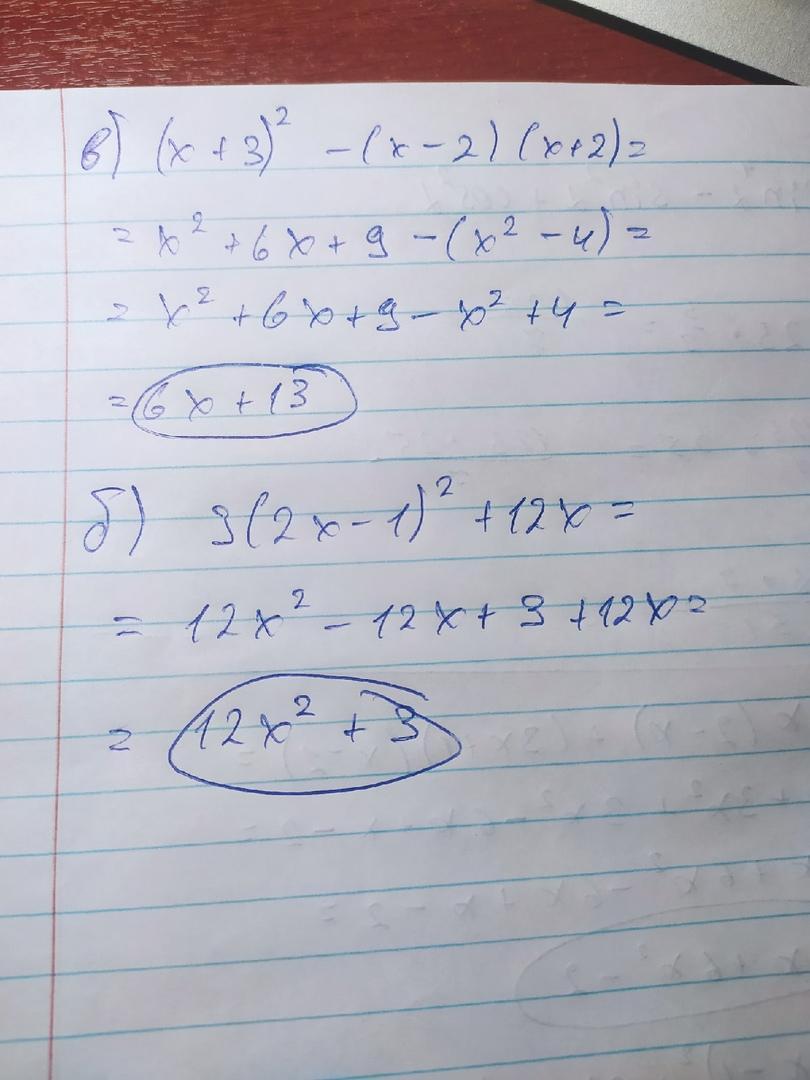 в) (x + 3)² - (x - 2) (x+2) =
= x² + 6x + 9 - (x² - 4) =
= x² + 6x + 9 - x² + 4 =
= 6x + 13
б) 3(2x - 1)² + 12x =
= 12x² - 12x + 3 + 12x =
= 12x² + 3